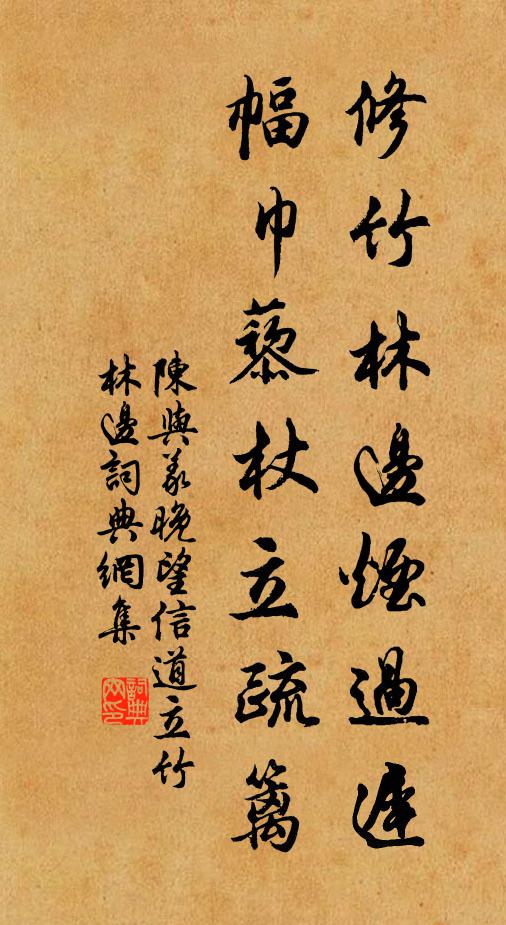 修竹林邊煙過遲
幅巾藜杖立疏籬
陳與義晚望信道立竹
林邊詞典網集
詞典
网印